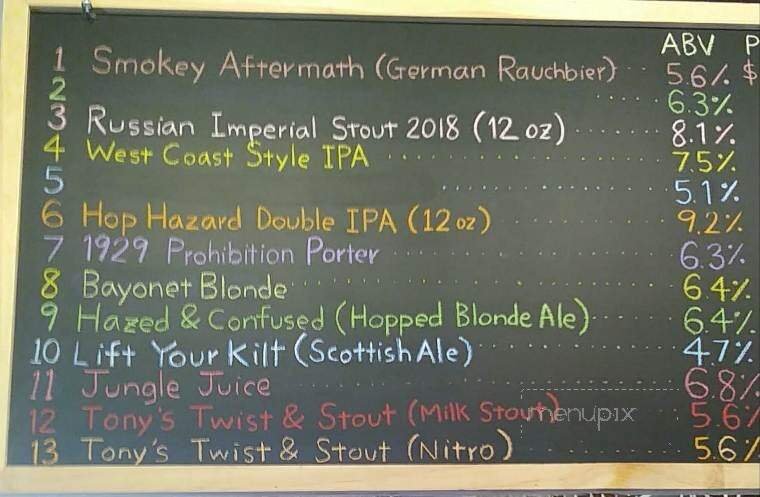 ABV P
1 Smokey Aftermath (German Rauchbier) 5.6% $
2 6.3%
3 Russian Imperial Stout 2018 (12 oz) 8.1%
4 West Coast Style IPA 7.5%
5 5.1%
6 Hop Hazard Double IPA (12 oz) 9.2%
7 1929 Prohibition Porter 6.3%
8 Bayonet Blonde 6.4%
9 Hazed & Confused (Hopped Blonde Ale) 6.4%
10 Lift Your Kilt (Scottish Ale) 4.7%
11 Jungle Juice 6.8%
12 Tony's Twist & Stout (Milk Stout) 5.6%
13 Tony's Twist & Stout (Nitro) 5.6%
menupix